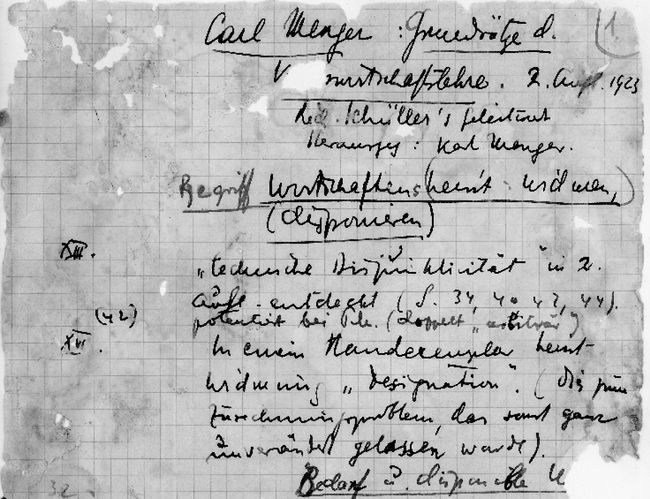 Carl Menger : Grundsätze d. 1.
V wirtschaftslehre. 2. Aufl. 1923
Rich. Schüller's Geleitwort
Herausg: Karl Menger.
Begriff Wirtschaftens (heisst widmen,)
(disponieren)
XIII. „technische Disjunktivität" in 2.
Aufl. entdeckt (S. 34, 40 42, 44).
(42) potenziert bei (doppelt „arbiträr")
XVI. In einem Handexemplar heisst
Widmung „Designation". (
Zurechnungsproblem, das sonst ganz
unverändert gelassen wurde).
Bedarf u. disponible
32